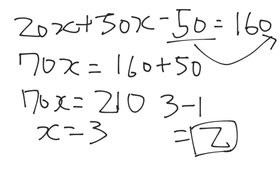 20x+50x-50=160
70x=160+50
70x=210 3-1
x=3 =2